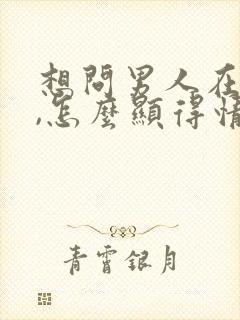 想問男人在
,怎麼顯得情
青霄銀月